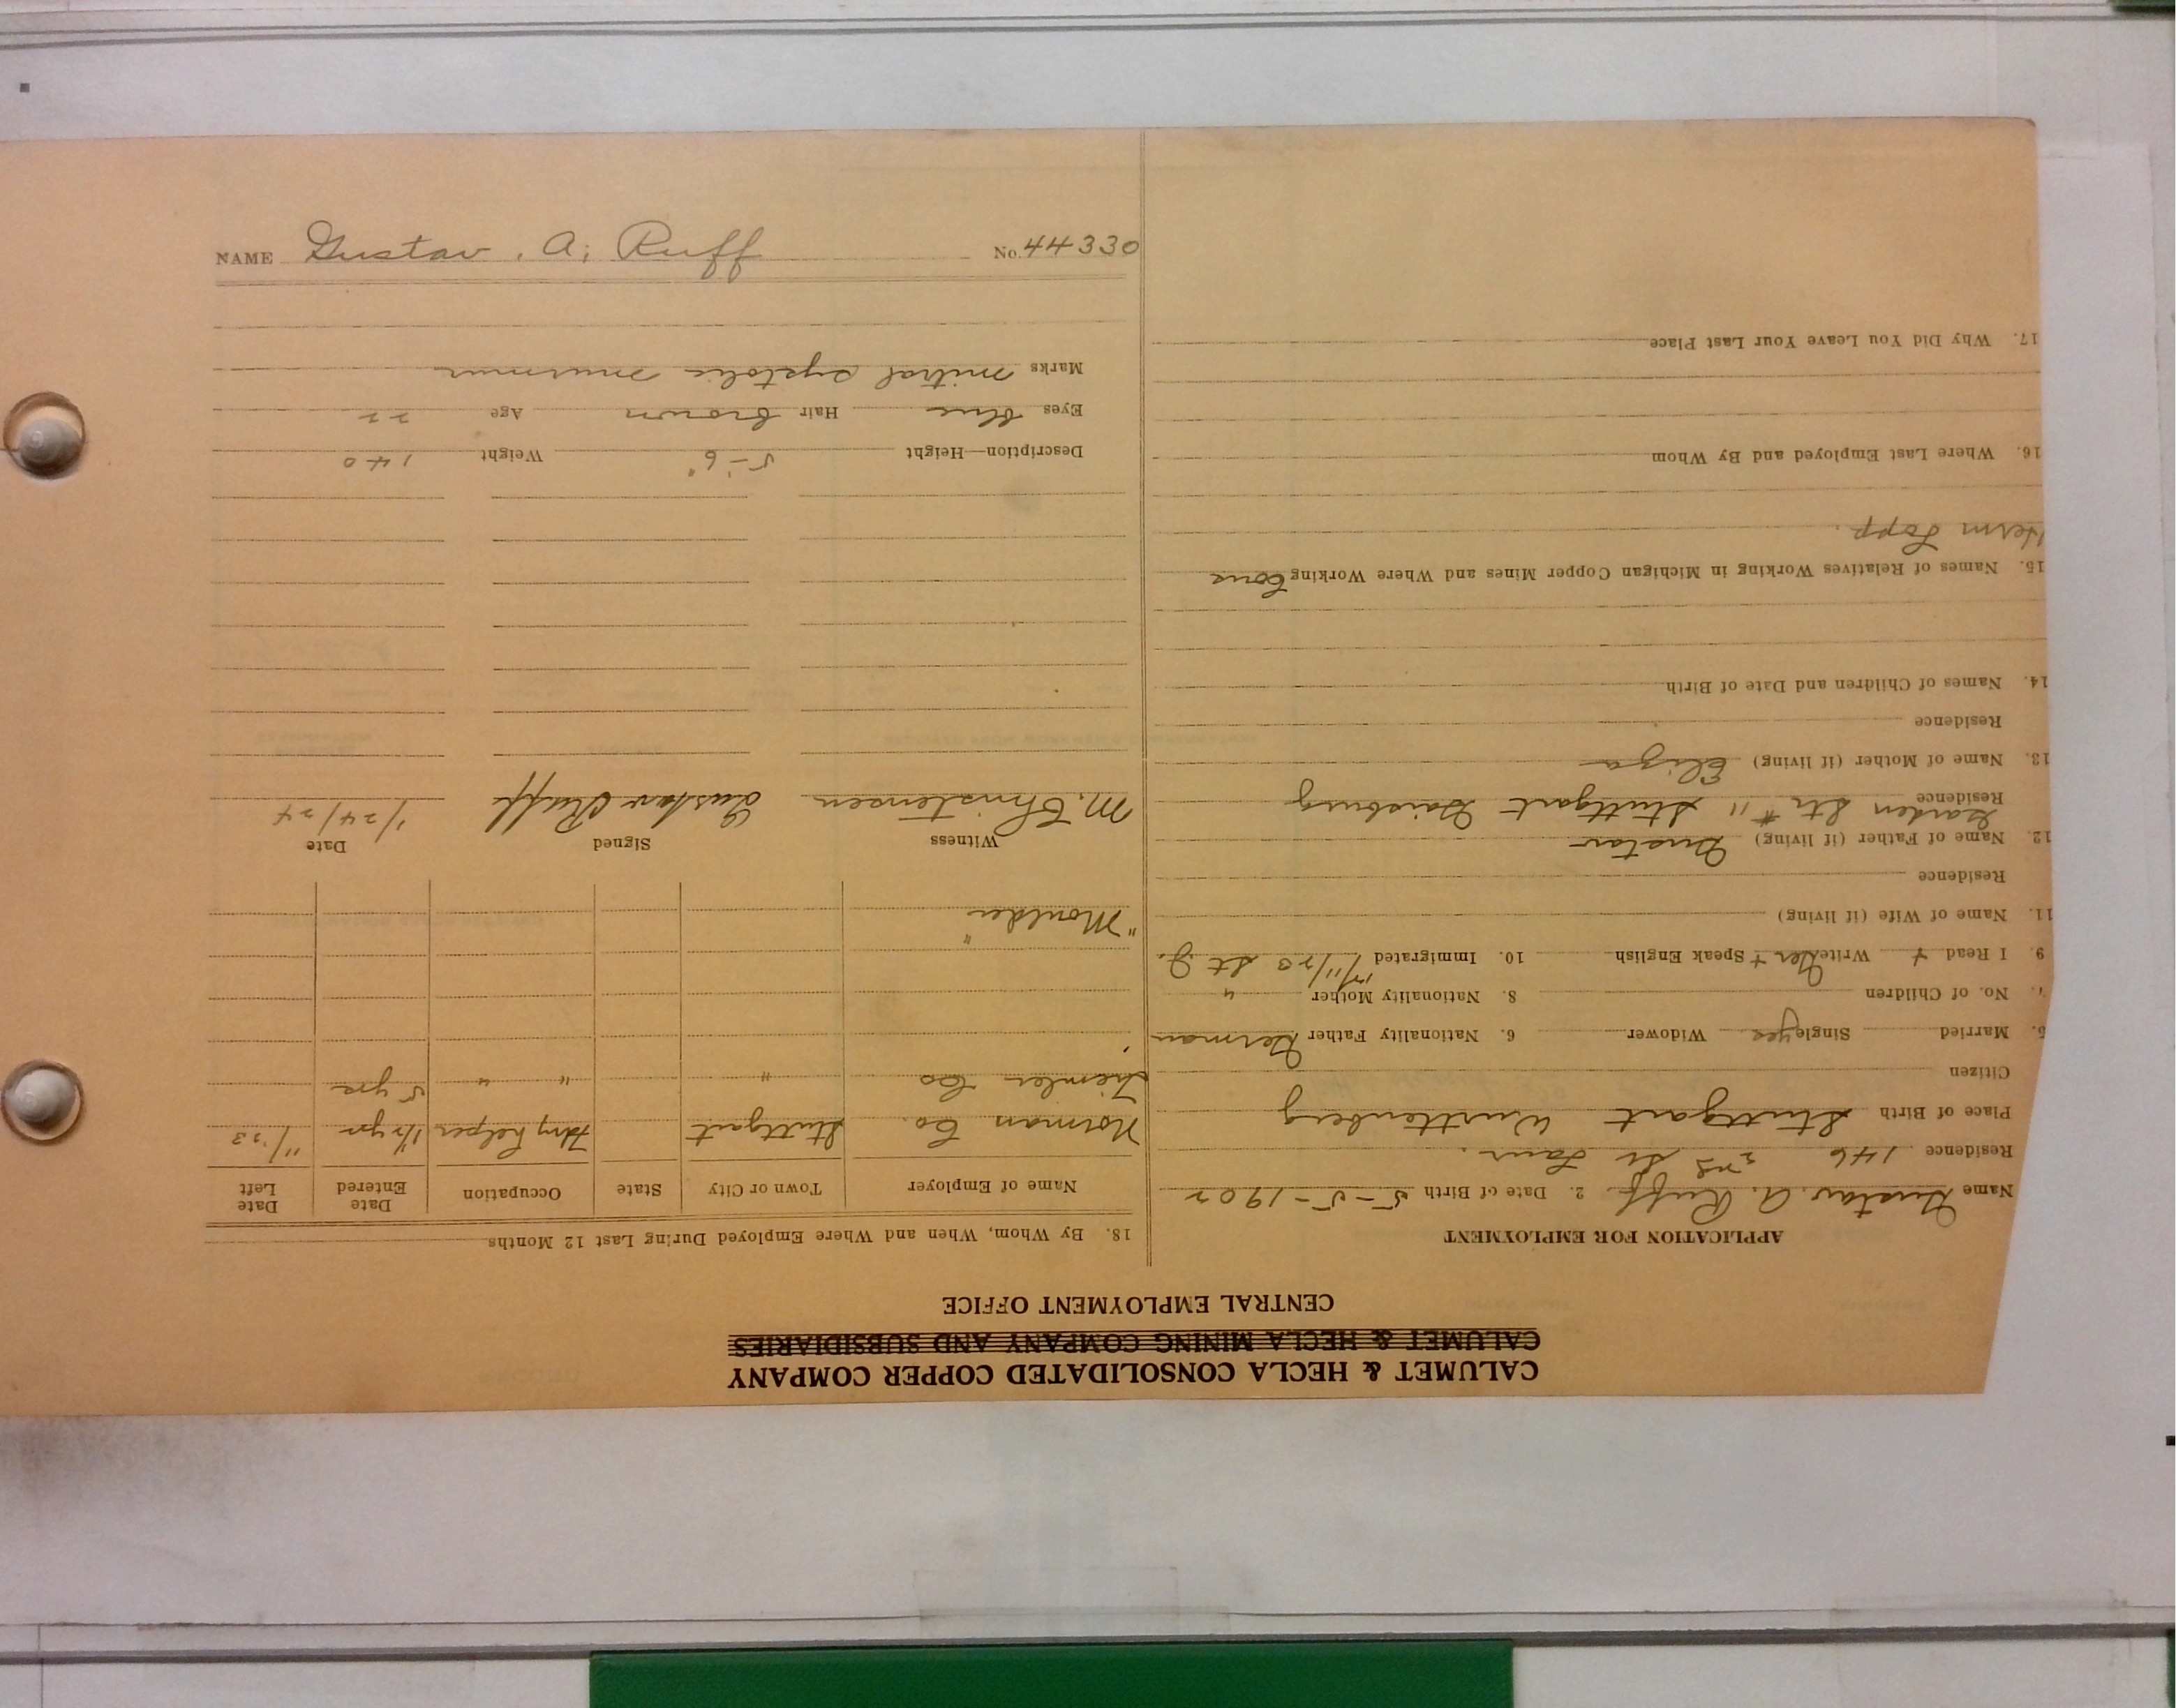 CALUMET & HECLA CONSOLIDATED COPPER COMPANY
CALUMET & HECLA MINING COMPANY AND SUBSIDIARIES
CENTRAL EMPLOYMENT OFFICE
APPLICATION FOR EMPLOYMENT
Name Gustav. A. Ruff. 2. Date of Birth 5-5-1902
Residence 146 2nd St Laur.
Place of Birth Stuttgart Wurttenberg
Citizen
5. Married Single yes Widower 6. Nationality Father German
7. No. of Children 8. Nationality Mother "
9. I Read + Write Ger + Speak English 10. Immigrated 12/11/23 St G.
11. Name of Wife (if living)
Residence
12. Name of Father (if living) Gustav
Residence Garden St. # 11 Stuttgart Gaisburg
13. Name of Mother (if living) Eliza
Residence
14. Names of Children and Date of Birth
15. Names of Relatives Working in Michigan Copper Mines and Where Working Cous
Herm Lopp.
16. Where Last Employed and By Whom
17. Why Did You Leave Your Last Place
18. By Whom, When and Where Employed During Last 12 Months
Name of Employer Town or City State Occupation Date Entered Date Left
Norman Co. Stuttgart Fdry helper 1 1/2 yrs 11/23
Co " " " 5 yrs
"Moulder"
Witness Signed Date
M. Christensen Gustav Ruff 1/24/24
Description—Height 5'-6" Weight 140
Eyes blue Hair brown Age 22
Marks mitral systolic murmur
NAME Gustav. A. Ruff No. 44330